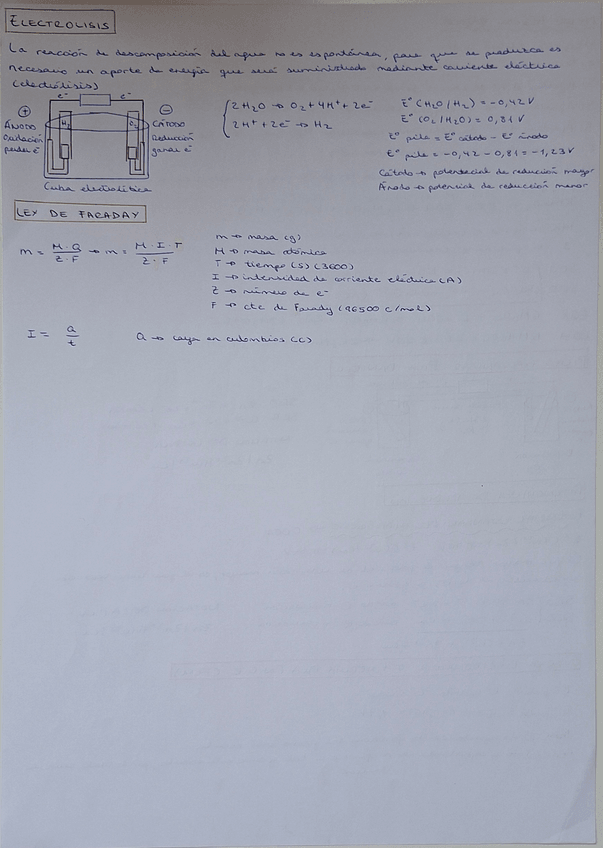 ELECTROLISIS
La reacción de descomposición del agua no es espontánea, para que se produzca es
necesario un aporte de energía que será suministrado mediante corriente eléctrica
(electrólisis)
e⁻ e⁻
+ −
ÁNODO CÁTODO
Oxidación Reducción
perder e⁻ ganar e⁻
Cuba electrolítica
2H₂O → O₂ + 4H⁺ + 2e⁻
2H⁺ + 2e⁻ → H₂
E° (H₂O/H₂) = −0,42 V
E° (O₂/H₂O) = 0,81 V
E° pila = E° cátodo − E° ánodo
E° pila = −0,42 − 0,81 = −1,23 V
Cátodo → potencial de reducción mayor
Ánodo → potencial de reducción menor
LEY DE FARADAY
m = M·Q / Z·F → m = M·I·T / Z·F
m → masa (g)
M → masa atómica
T → tiempo (s) (3600)
I → intensidad de corriente eléctrica (A)
Z → número de e⁻
F → cte de Farady (96500 C/mol)
I = Q / t
Q → carga en culombios (C)